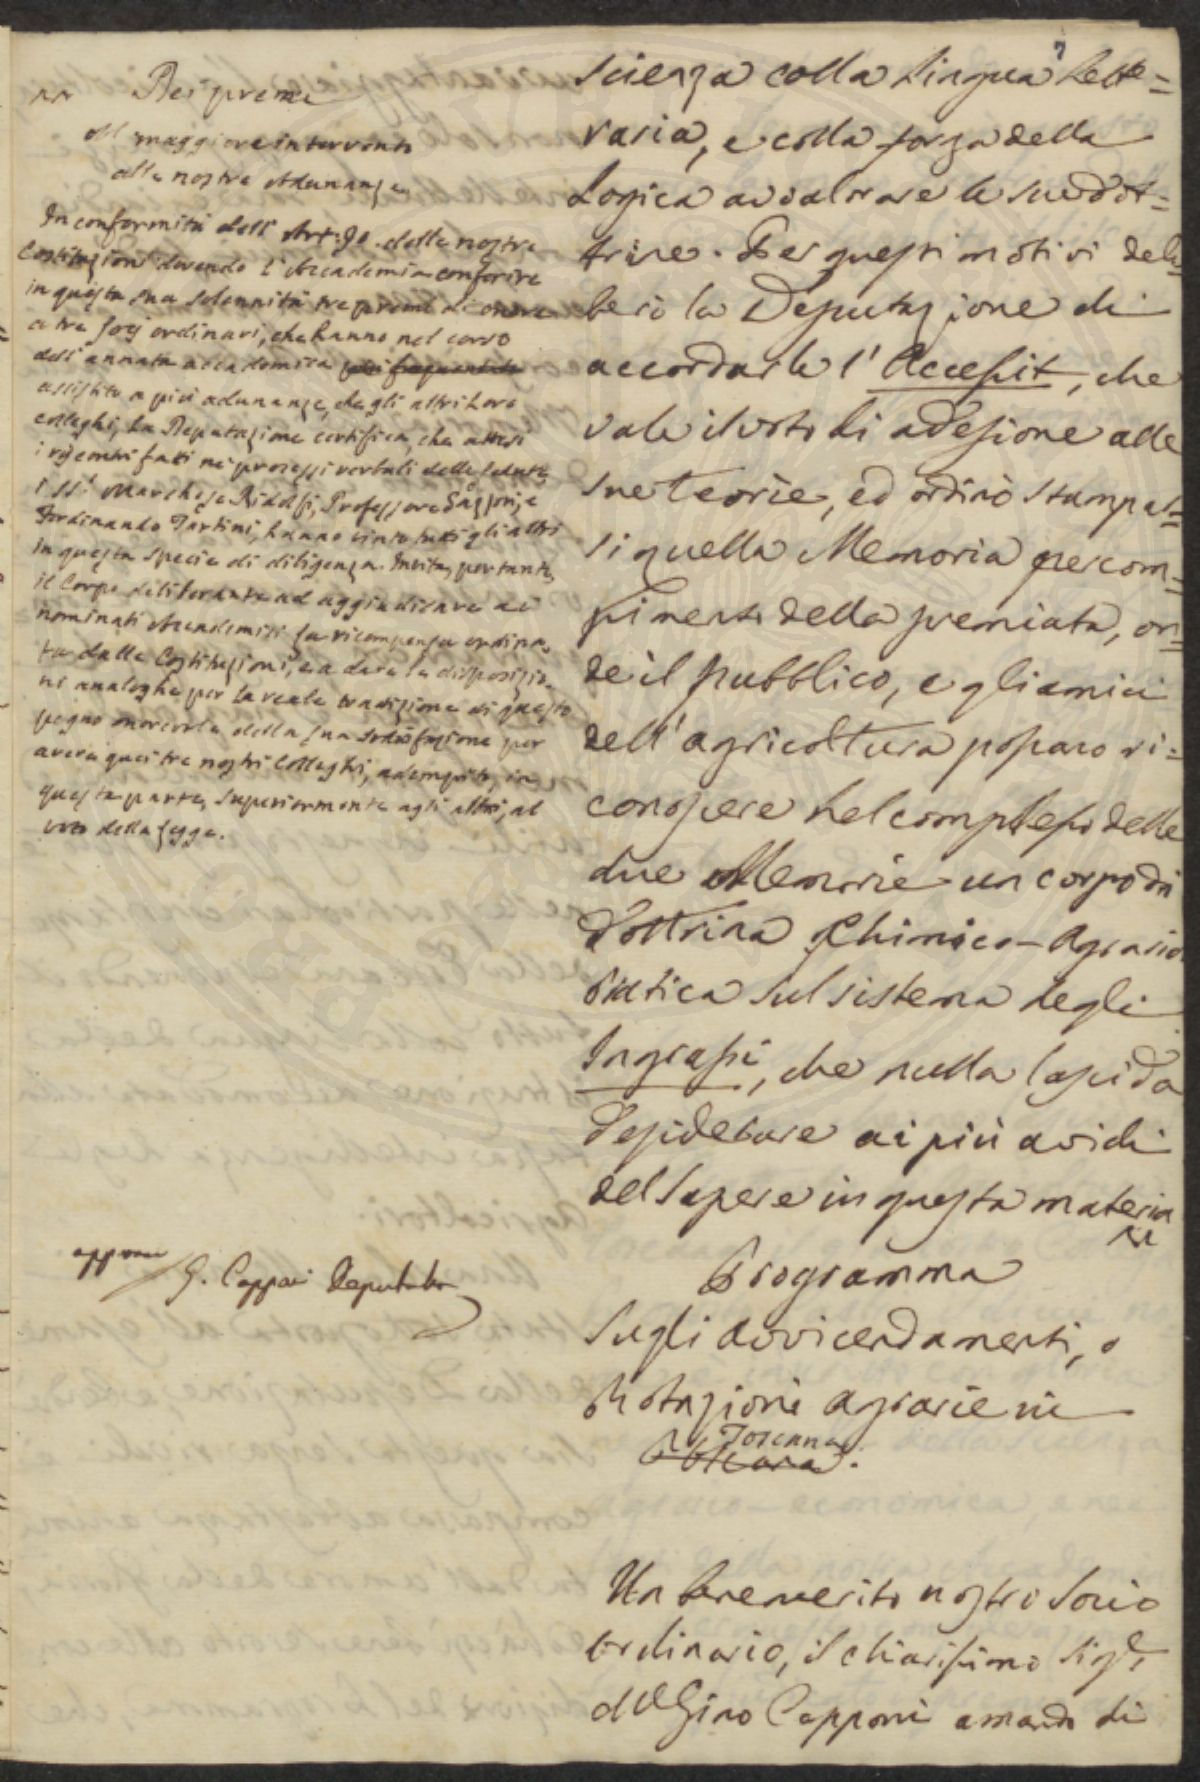 Dei premi
Al maggiore intervento
alle nostre Adunanze
In conformità dell' Art. 90. delle nostre
Costituzioni dovendo l'Accademia conferire
in questa sua solennità tre premi di onore
a tre socj ordinari, che hanno nel corso
dell'annata accademica più frequentato
assistito a più adunanze, che gli altri loro
colleghi, la Deputazione certifica, che attesi
i riscontri fatti ne' processi verbali delle Sedute
i SS.i Marchese Ridolfi, Professore Gazzeri, e
Ferdinando Tartini, hanno vinto tutti gli altri
in questa specie di diligenza. Invita, pertanto,
il Corpo deliberante ad aggiudicare ai
nominati Accademici la ricompensa ordina-
ta dalle Costituzioni, e a dare le disposizio-
ni analoghe per la reale tradizione di questo
pegno onorevole della sua sodisfazione per
avere quei tre nostri Colleghi, adempito, in
questa parte, superiormente agli altri, al
voto della legge.
approvo
G. Capponi Deputato
7
scienza colla lingua lette=
raria, e colla forza della
Logica avvalorare le sue dot=
trine. Per questi motivi deli=
berò la Deputazione di
accordarle l'Accessit, che
vale il voto di adesione alle
sue teorie, ed ordinò stampar=
si quella Memoria per com=
pimento della premiata, on=
de il pubblico, e gli amici
dell'agricoltura possano ri=
conoscere nel complesso delle
due Memorie un corpo di
dottrina Chimico-Agrario
pratica sul sistema degli
Ingrassi, che nulla lascida
desiderare ai più avidi
del sapere in questa materia
Programma
Sugli avvicendamenti, o
Rotazioni agrarie in
Toscana
Toscana.
Un benemerito nostro Socio
ordinario, il chiarissimo Sig.r
M.se Gino Capponi amando di